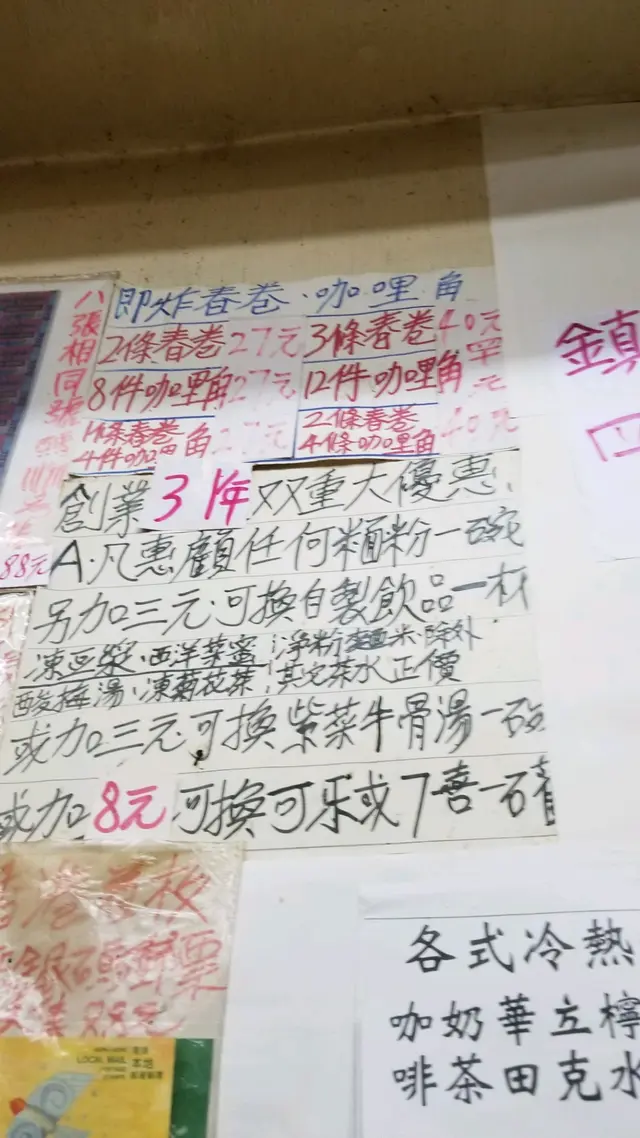 即炸春卷·咖哩角
2條春卷27元
3條春卷40元
8件咖哩角27元
12件咖哩角
1條春卷
4件咖 角27元
2條春卷
4條咖哩角40元
八張相同號
88元
創業31年双重大優惠、
A·凡惠顧任何麵粉一碗
另加三元·可換自製飲品一杯
凍豆漿·西洋菜蜜 淨粉麵米·除外
酸梅湯·凍菊花茶 其它茶水正價
或加三元·可換紫菜牛骨湯一碗
或加8元·可換可乐或7喜一
郵票
LOCAL MAIL 本地
鎮
各式冷熱
咖奶華立檸
啡茶田克水